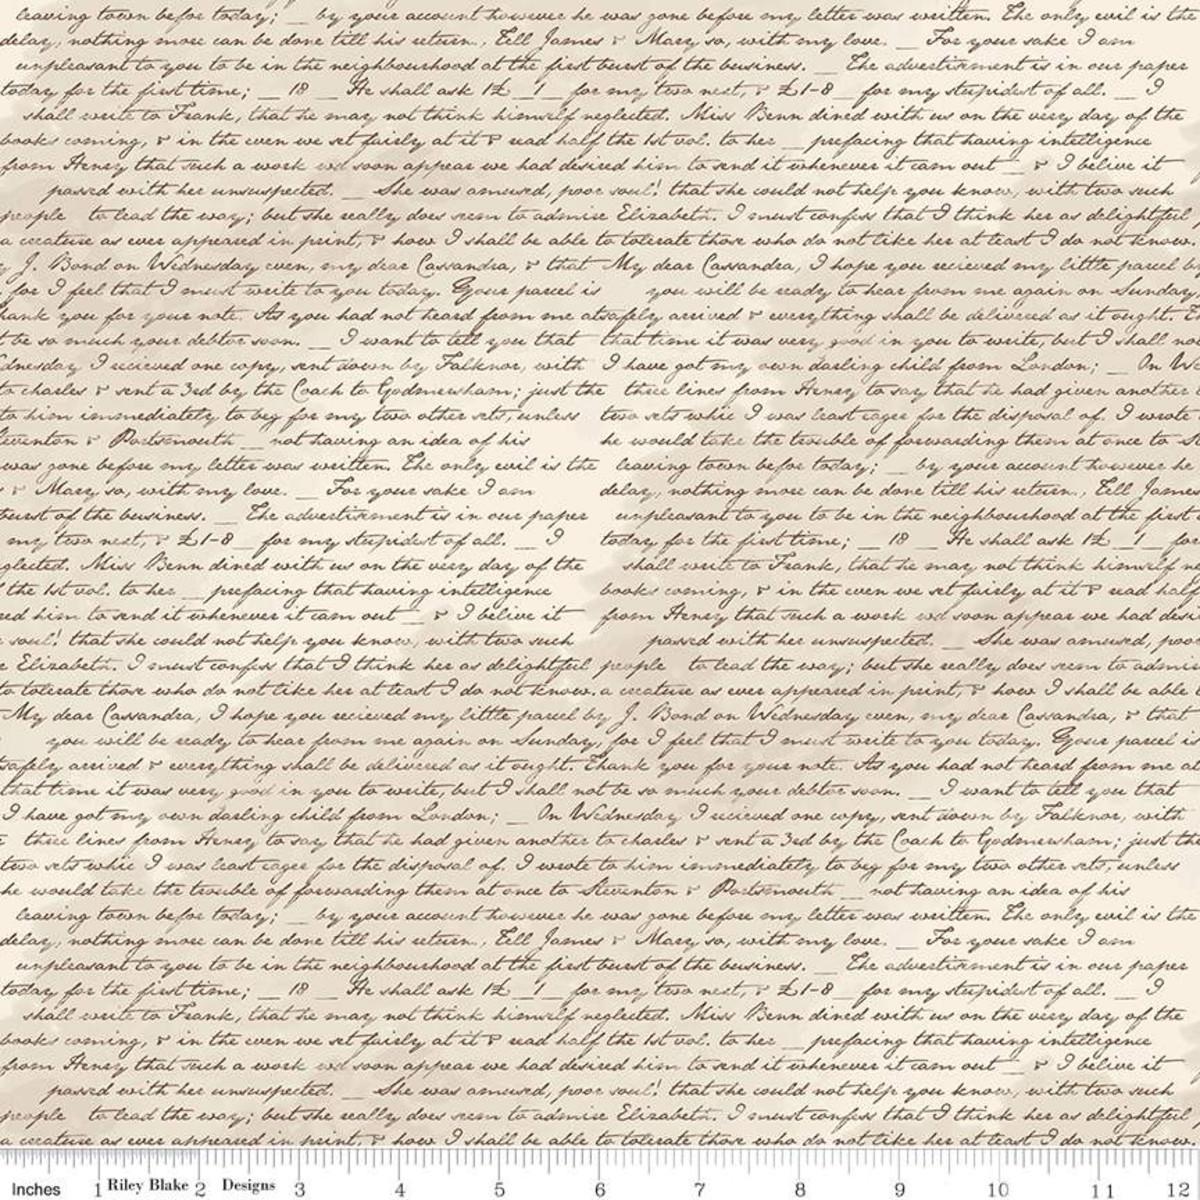 leaving town befor today; _ by your account however he was gone before my letter was written. The only evil is the
delay, nothing more can be done till his return., Tell James & Mary so, with my love. _ For your sake I am
unpleasant to you to be in the neighbourhood at the first burst of the beusiness. _ The advertisment is in our paper
today for the first time; _ 18 _ He shall ask 1£ _1_ for my two next, & £1-8 _ for my stupidest of all. _ I
shall write to Frank, that he may not think himself neglected. Miss Benn dined with us on the very day of the
books coming, & in the even we set fairly at it & read half the 1st vol. to her _ prefacing that having intelligence
from Henry that such a work wd soon appear we had desired him to send it whenever it cam out _ & I believe it
passed with her unsuspected. _ She was amused, poor soul! that she could not help you know, with two such
people to lead the way; but she really does seem to admire Elizabeth. I must confess that I think her as delightful
a creature as ever appeared in print, & how I shall be able to tolerate those who do not like her at least I do not know.
y J. Bond on Wednesday even, my dear Cassandra, & that My dear Cassandra, I hope you recieved my little parcel by
, for I feel that I must write to you today. Your parcel is you will be ready to hear from me again on Sunday,
hank you for your note. As you had not heard from me at safely arrived & everything shall be delivered as it ought. Th
t be so much your debtor soon. _ I want to tell you that that time it was very good in you to write, but I shall not
dnesday I recieved one copy, sent down by Falknor, with I have got my own darling child from London; _ On We
to charles & sent a 3rd by the Coach to Godmersham; just the three lines from Henry to say that he had given another
to him immediately to beg for my two other sets, unless two sets whic I was least eager for the disposal of. I wrote
teventon & Portsmouth _ not having an idea of his he would take the trouble of forwarding them at once to St
was gone before my letter was written. The only evil is the leaving town befor today; _ by your account however he
& Mary so, with my love. _ For your sake I am delay, nothing more can be done till his return., Tell James
burst of the beusiness. _ The advertisment is in our paper unpleasant to you to be in the neighbourhood at the first
my two next, & £1-8 _ for my stupidest of all. _ I today for the first time; _ 18 _ He shall ask 1£ _1_ for
glected. Miss Benn dined with us on the very day of the shall write to Frank, that he may not think himself ne
the 1st vol. to her _ prefacing that having intelligence books coming, & in the even we set fairly at it & read half
red him to send it whenever it cam out _ & I believe it from Henry that such a work wd soon appear we had desi
soul! that she could not help you know, with two such passed with her unsuspected. _ She was amused, poor
e Elizabeth. I must confess that I think her as delightful people to lead the way; but she really does seem to admir
to tolerate those who do not like her at least I do not know. a creature as ever appeared in print, & how I shall be able
My dear Cassandra, I hope you recieved my little parcel by J. Bond on Wednesday even, my dear Cassandra, & that
you will be ready to hear from me again on Sunday, for I feel that I must write to you today. Your parcel is
safely arrived & everything shall be delivered as it ought. Thank you for your note. As you had not heard from me at
that time it was very good in you to write, but I shall not be so much your debtor soon. _ I want to tell you that
I have got my own darling child from London; _ On Wednesday I recieved one copy, sent down by Falknor, with
three lines from Henry to say that he had given another to charles & sent a 3rd by the Coach to Godmersham; just the
two sets whic I was least eager for the disposal of. I wrote to him immediately to beg for my two other sets, unless
he would take the trouble of forwarding them at once to Steventon & Portsmouth _ not having an idea of his
leaving town befor today; _ by your account however he was gone before my letter was written. The only evil is the
delay, nothing more can be done till his return., Tell James & Mary so, with my love. _ For your sake I am
unpleasant to you to be in the neighbourhood at the first burst of the beusiness. _ The advertisment is in our paper
today for the first time; _ 18 _ He shall ask 1£ _1_ for my two next, & £1-8 _ for my stupidest of all. _ I
shall write to Frank, that he may not think himself neglected. Miss Benn dined with us on the very day of the
books coming, & in the even we set fairly at it & read half the 1st vol. to her _ prefacing that having intelligence
from Henry that such a work wd soon appear we had desired him to send it whenever it cam out _ & I believe it
passed with her unsuspected. _ She was amused, poor soul! that she could not help you know, with two such
people to lead the way; but she really does seem to admire Elizabeth. I must confess that I think her as delightful
a creature as ever appeared in print, & how I shall be able to tolerate those who do not like her at least I do not know.
Inches 1 Riley Blake 2 Designs 3 4 5 6 7 8 9 10 11 12